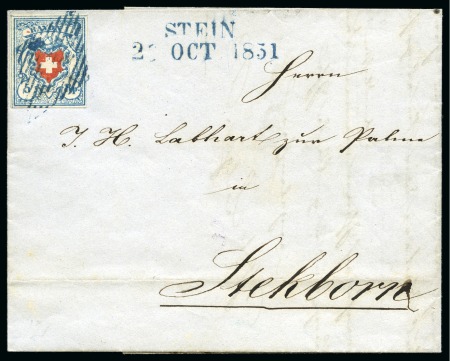 STEIN
OCT 1851
Herrn
J. H. Labhart zur Palme
in
Stekborn